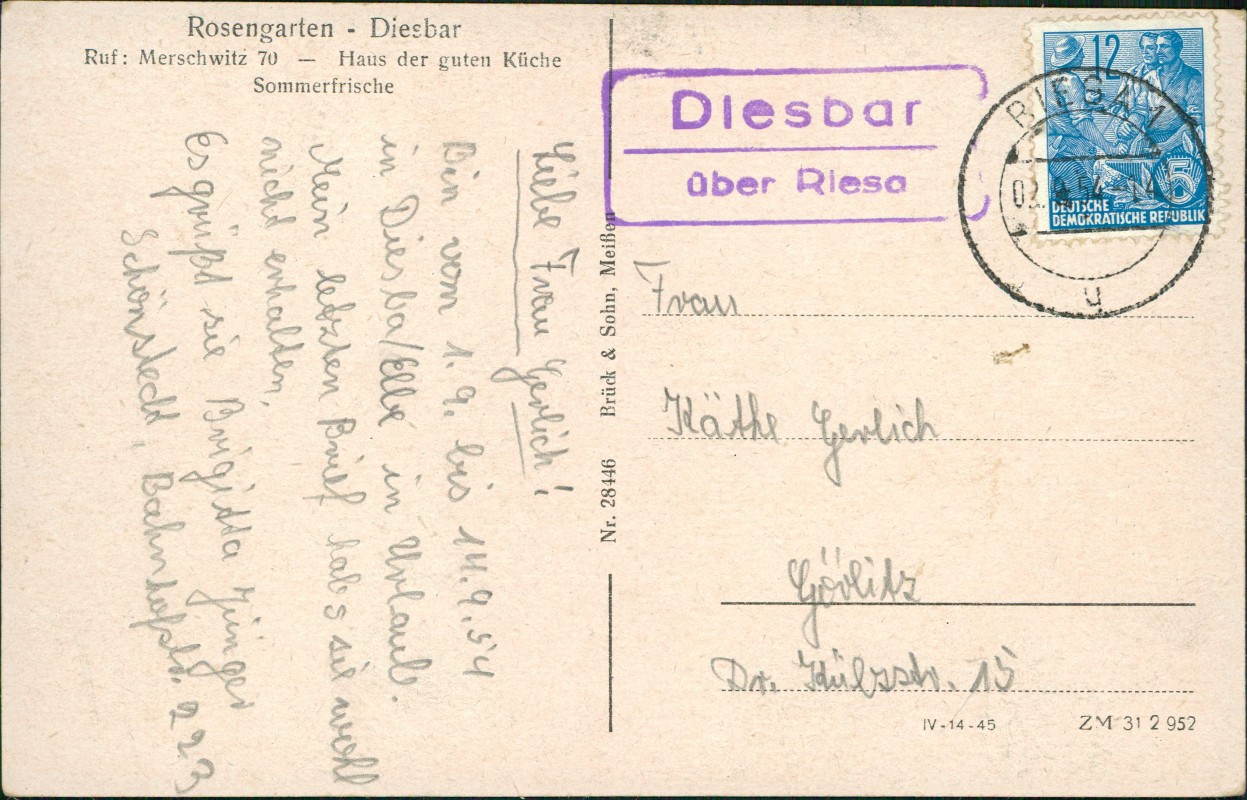 Rosengarten - Diesbar
Ruf: Merschwitz 70 — Haus der guten Küche
Sommerfrische
Liebe Frau Gerlich!
Bin vom 1.9. bis 14.9.54
in Diesba/Elbe in Urlaub.
Mein letzten Brief habs sie wohl
nicht erhalten,
Es grüßt sie Brigitta Jünger
Schönstedt, Bahnhofstr. 223
Nr. 28446 Brück & Sohn, Meißen
Diesbar
über Riesa
12
5
DEUTSCHE
DEMOKRATISCHE REPUBLIK
RIESA 1
54-14
u
Frau
Käthe Gerlich
Görlitz
Dr. Külzstr. 15
IV-14-45 ZM 31 2 952